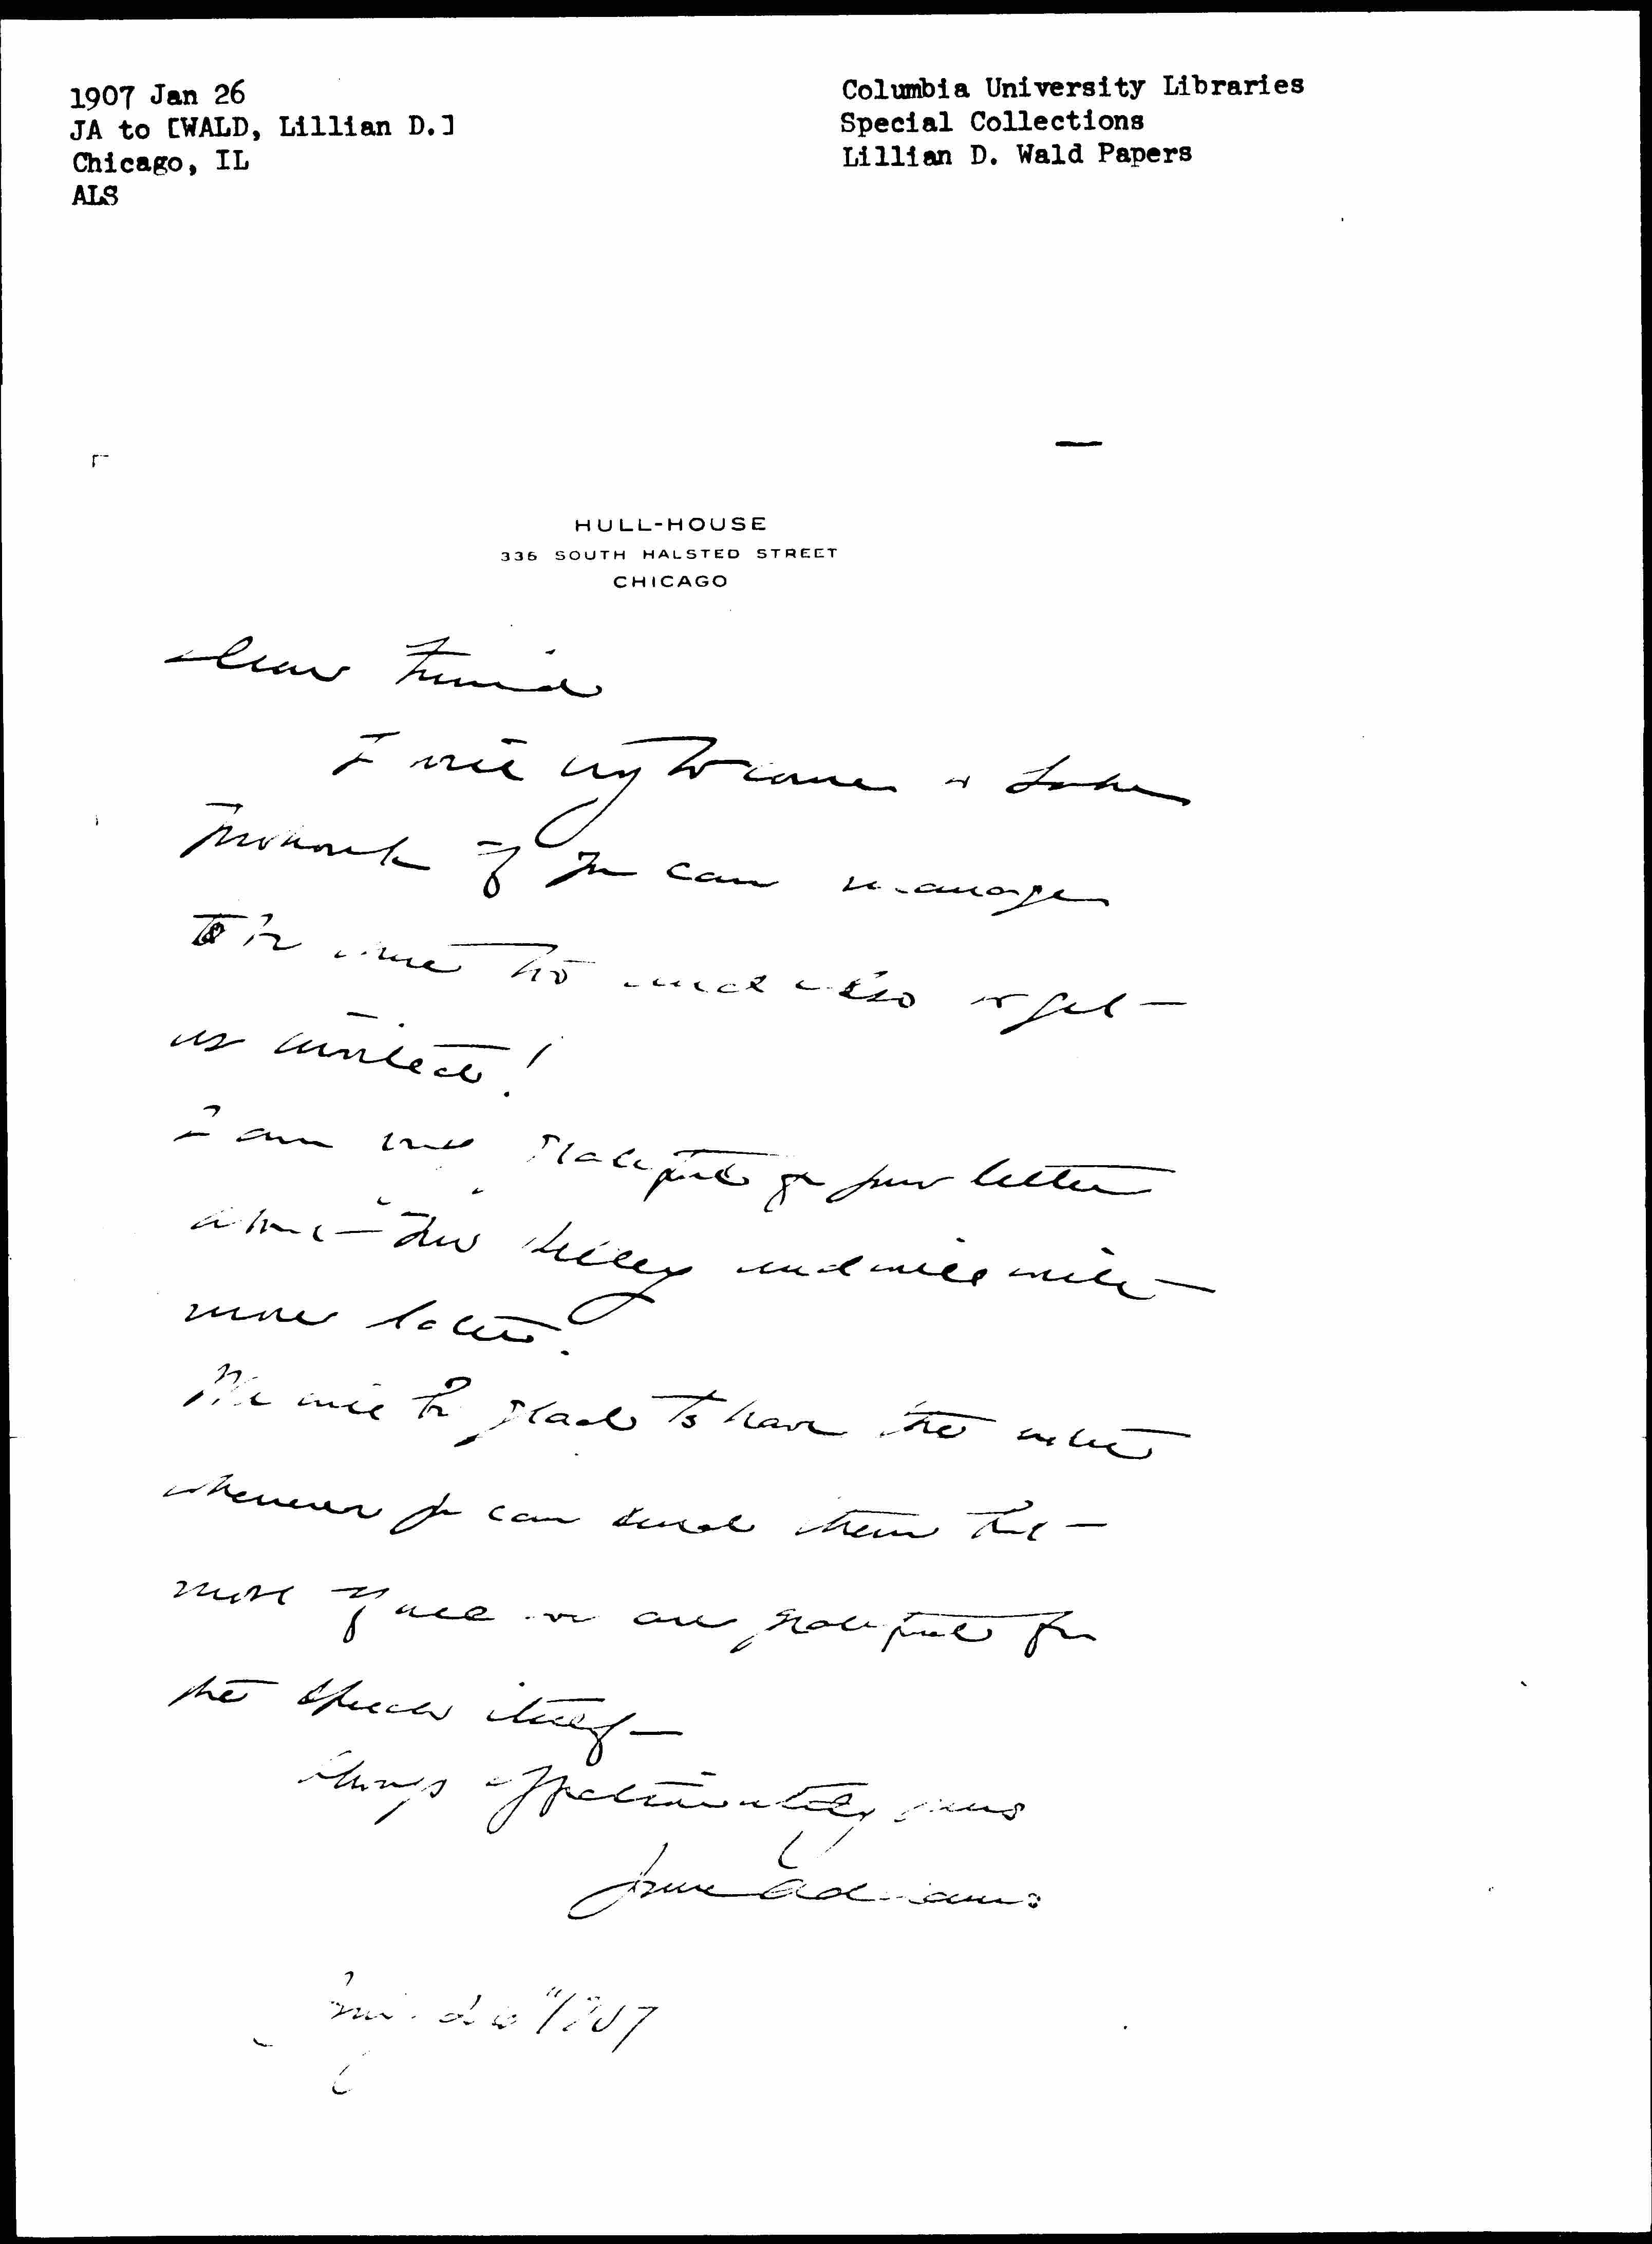 1907 Jan 26
JA to [WALD, Lillian D.]
Chicago, IL
ALS
Columbia University Libraries
Special Collections
Lillian D. Wald Papers
HULL-HOUSE
336 SOUTH HALSTED STREET
CHICAGO
Dear Friend
I will try to come to Lake
Mohonk if you can manage
to be there too and also to get
us invited!
I am very grateful for your letter
about Mrs Kelley and will write
more later.
We will be glad to have the
whenever you can send them but
most of all we are grateful for
the itself
Always affectionately yours
Jane Addams
26" 1907